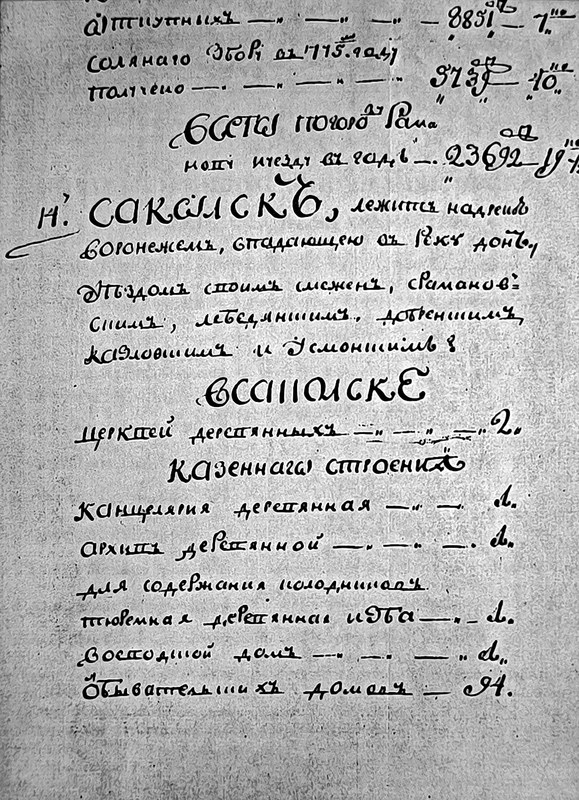 аптпупныхъ — „ — „ — „ — 8851 — 7
солянаго збору въ 775. году
получено — . — „ — — „ — „ 3739 — 40.
всего
мопі иуезду въ годъ — . 23692 — 19
н. САКОЛСКЪ, лежитъ надрекою
воронежемъ, впадающею въ реку донъ,
уѣздомъ своимъ смежен, сраманов=
скимъ, лебедянскимъ, добренскимъ,
казловскимъ и усмонскимъ
ВСАКОЛСКЕ
церквей деревянныхъ — „ — „ — „ 2.
казеннаго строения
канцелярия деревянная — „ — „ 1.
архивъ деревянной — „ — „ — . 1.
для содержания колодниковъ
тюремная деревянная изба — „ — 1.
воеводской домъ — „ — „ — „ 1.
обывательскихъ домовъ — 94.